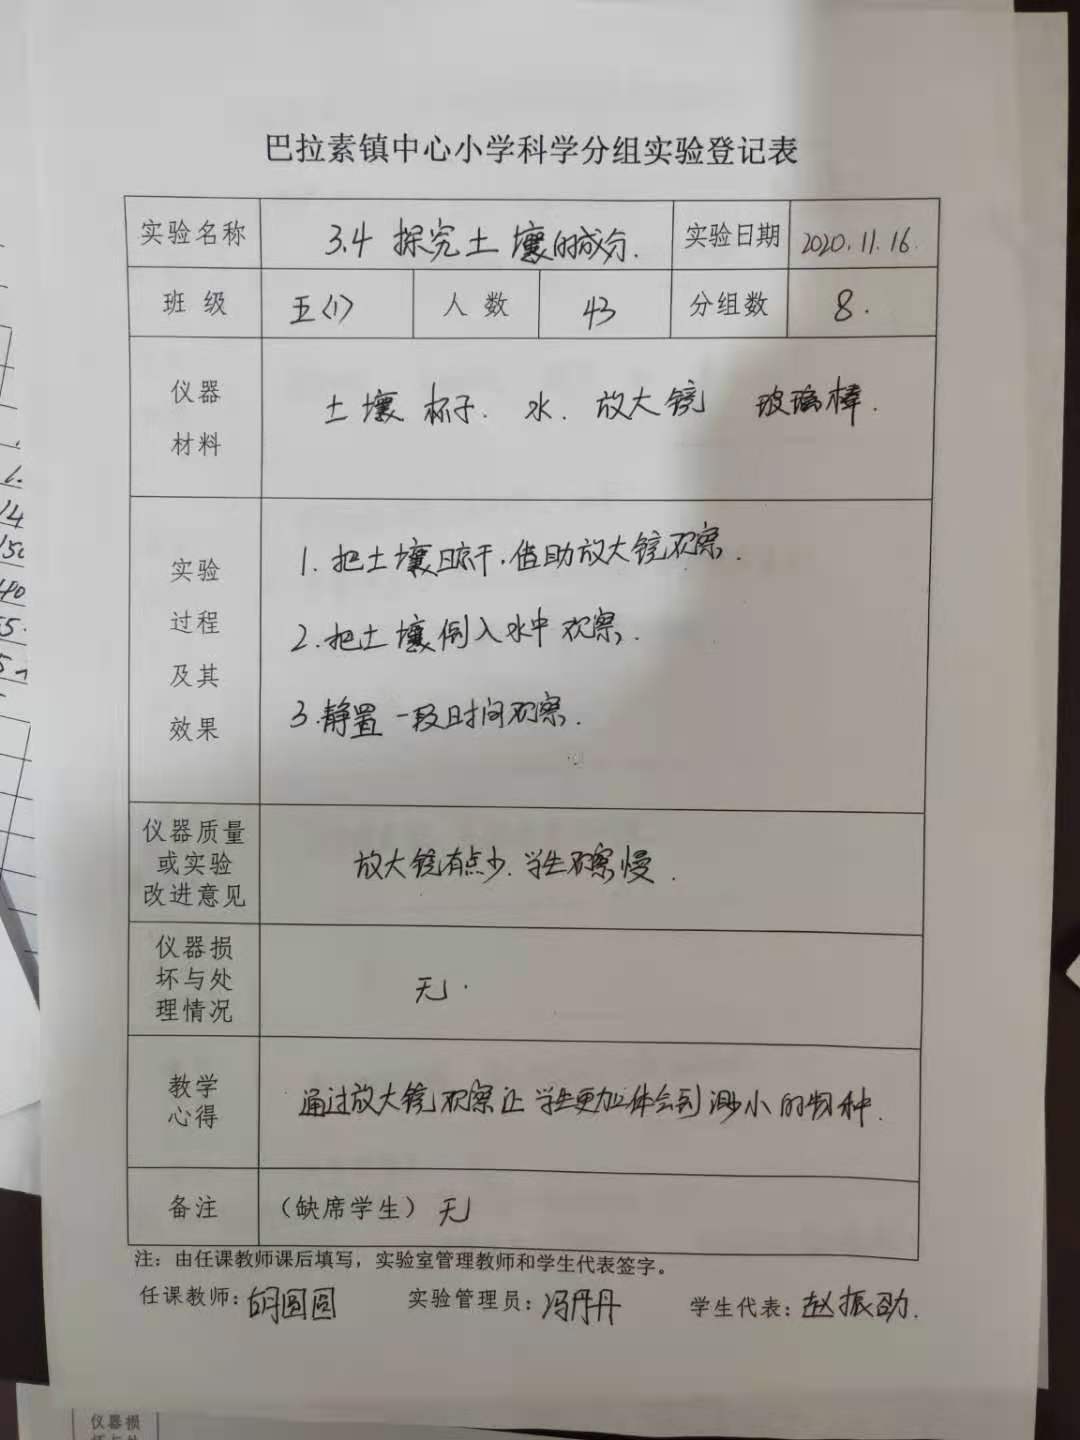 巴拉素镇中心小学科学分组实验登记表
实验名称 3.4 探究土壤的成分. 实验日期 2020.11.16.
班级 五(1) 人数 43 分组数 8.
仪器
材料
土壤 杯子. 水. 放大镜 玻璃棒.
实验
过程
及其
效果
1. 把土壤晾干,借助放大镜观察.
2. 把土壤倒入水中观察.
3. 静置一段时间观察.
仪器质量
或实验
改进意见
放大镜有点少. 学生观察慢.
仪器损
坏与处
理情况
无.
教学
心得
通过放大镜观察让学生更加体会到渺小的物种.
备注 (缺席学生) 无
注：由任课教师课后填写，实验室管理教师和学生代表签字。
任课教师：胡圆圆 实验管理员：冯丹丹 学生代表：赵振劭.
仪器损
坏与处